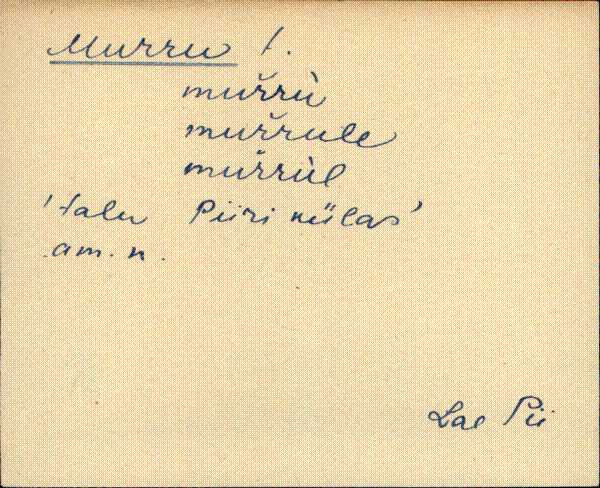 Murru t.
mur̆rù
mur̆rule
mur̆rùl
'talu Piiri külas'
am. n.
Lae Pii